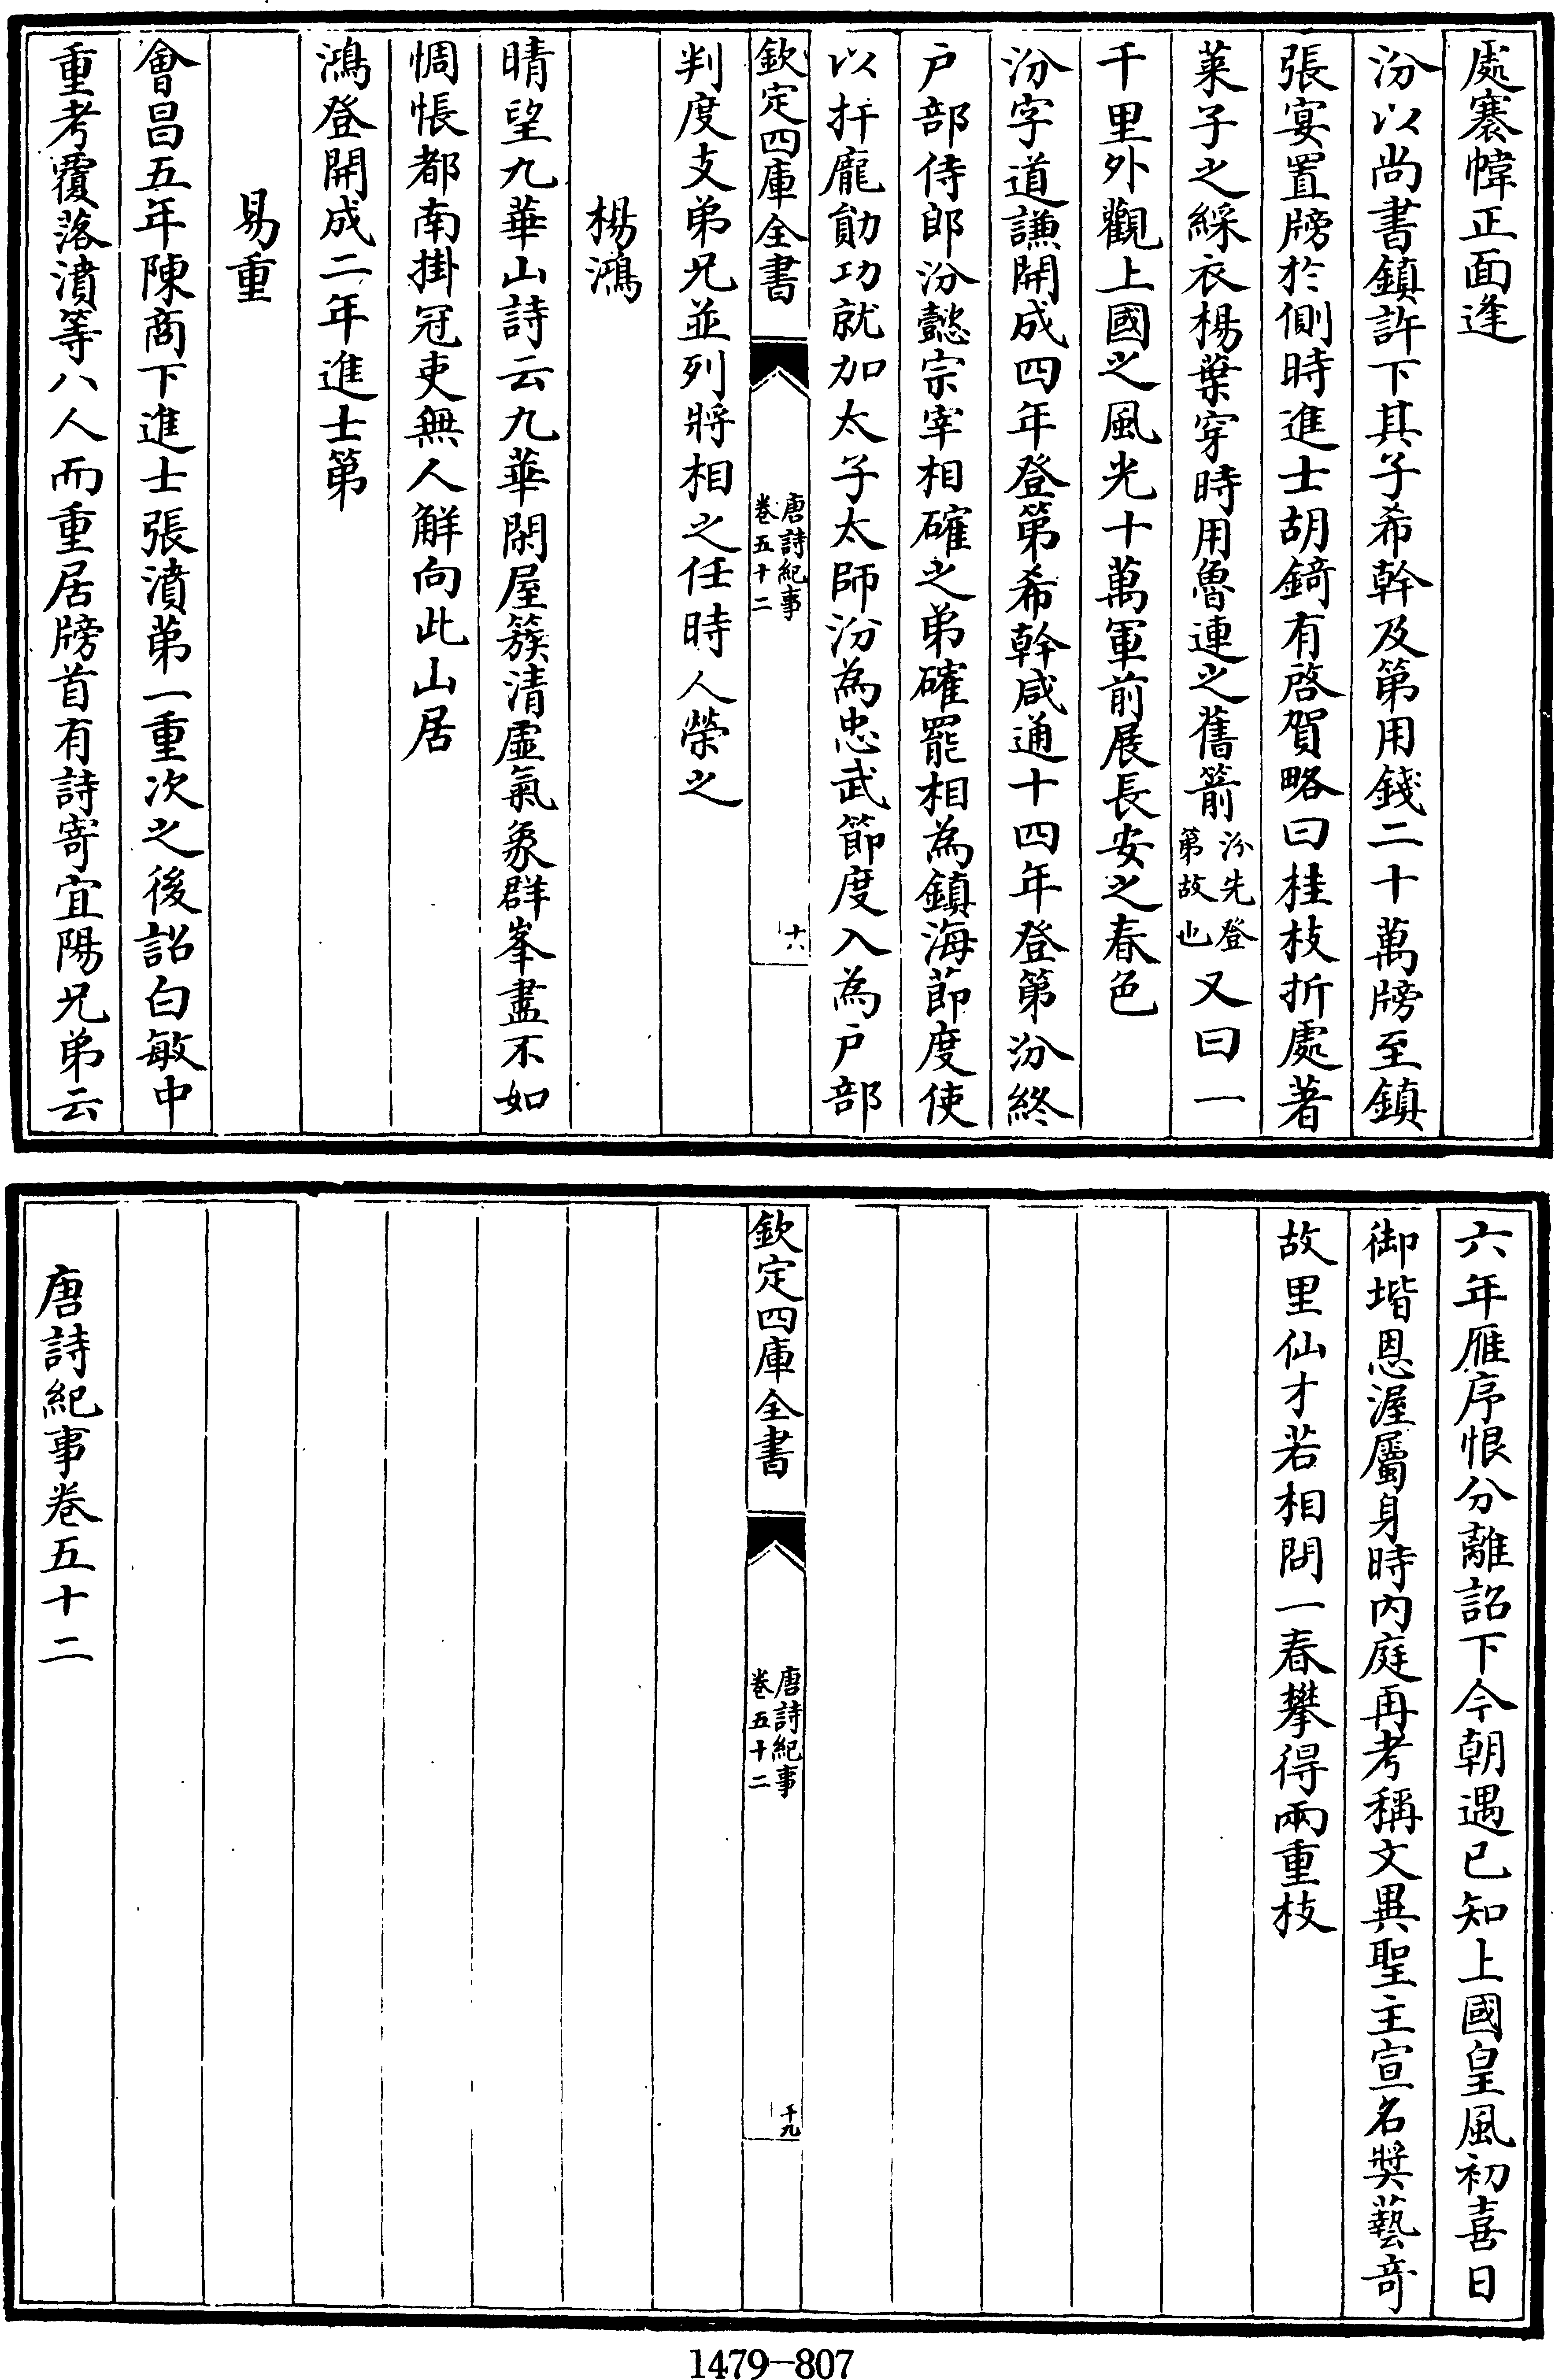 處褰幃正面逢
汾以尚書鎮許下其子希幹及第用錢二十萬牓至鎮
張宴置牓於側時進士胡錡有啓賀略曰桂枝折處著
萊子之綵衣楊葉穿時用魯連之舊箭汾先登第故也又曰一
千里外觀上國之風光十萬軍前展長安之春色
汾字道謙開成四年登第希幹咸通十四年登第汾終
户部侍郎汾懿宗宰相確之弟確罷相為鎮海節度使
以扞龐勛功就加太子太師汾為忠武節度入為户部
欽定四庫全書
唐詩紀事
卷五十二
十八
判度支弟兄並列將相之任時人榮之
楊鴻
晴望九華山詩云九華閑屋簇清虛氣象群峯盡不如
惆悵都南掛冠吏無人解向此山居
鴻登開成二年進士第
易重
會昌五年陳商下進士張濆第一重次之後詔白敏中
重考覆落濆等八人而重居牓首有詩寄宜陽兄弟云
六年雁序恨分離詔下今朝遇已知上國皇風初喜日
御堦恩渥屬身時内庭再考稱文異聖主宣名奬藝奇
故里仙才若相問一春攀得兩重枝
欽定四庫全書
唐詩紀事
卷五十二
十九
唐詩紀事卷五十二
1479-807